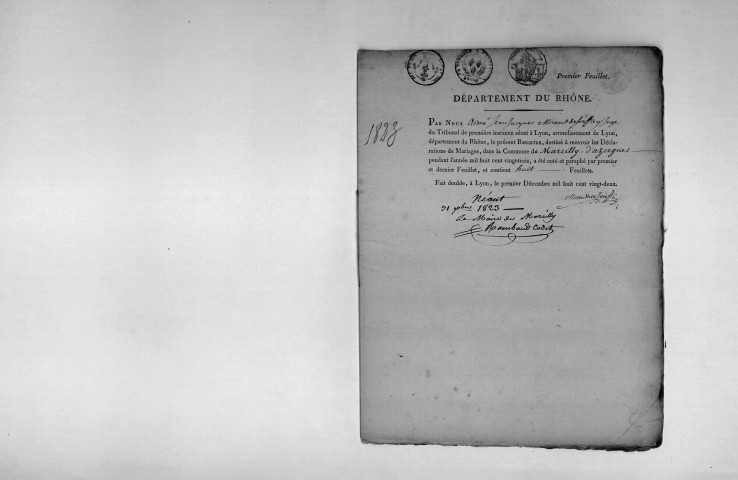 Premier Feuillet.
DÉPARTEMENT DU RHÔNE.
1823
PAR NOUS Aimé Jean Jacques juge
du Tribunal de première instance séant à Lyon, arrondissement de Lyon,
département du Rhône, le présent REGISTRE, destiné à recevoir les Décla-
rations de Mariages, dans la Commune de Marcilly d'azergues
pendant l'année mil huit cent vingt-trois, a été coté et paraphé par premier
et dernier Feuillet, et contient huit Feuillets.
Fait double, à Lyon, le premier Décembre mil huit cent vingt-deux.
Néant
31 xbre 1823
Le Maire de Marcilly
Rambaud Cadet